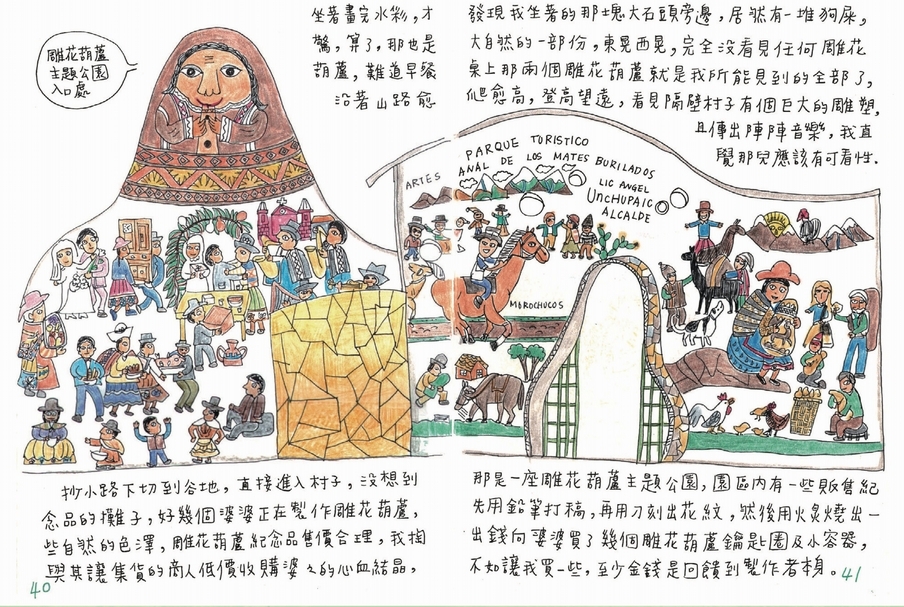 坐著畫完水彩，才發現我坐著的那塊大石頭旁邊，居然有一堆狗屎，
驚，算了，那也是大自然的一部份，東晃西晃，完全沒看見任何雕花
葫蘆，難道早餐桌上那兩個雕花葫蘆就是我所能見到的全部了，
沿著山路愈爬愈高，登高望遠，看見隔壁村子有個巨大的雕塑，
且傳出陣陣音樂，我直
覺那兒應該有可看性．
雕花葫蘆
主題公園
入口處
PARQUE TORISTICO
ARTESANAL DE LOS MATES BURILADOS
LIC ANGEL
UNCHUPAIC
ALCALDE
MOROCHUCOS
抄小路下切到谷地，直接進入村子，沒想到那是一座雕花葫蘆主題公園，園區內有一些販售紀
念品的攤子，好幾個婆婆正在製作雕花葫蘆，先用鉛筆打稿，再用刀刻出花紋，然後用火炙燒出一
些自然的色澤，雕花葫蘆紀念品售價合理，我掏出錢向婆婆買了幾個雕花葫蘆鑰匙圈及小容器，
與其讓集貨的商人低價收購婆々的心血結晶，不如讓我買一些，至少金錢是回饋到製作者本身。
40
41